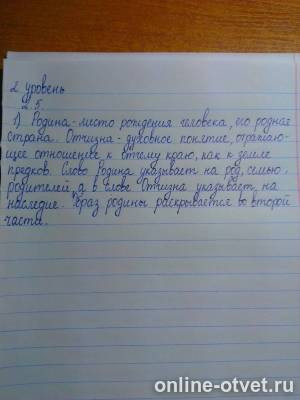 2 уровень
2.5.
1) Родина - место рождения человека, его родная
страна. Отчизна - духовное понятие, отражаю-
щее отношение к отчему краю, как к земле
предков. Слово Родина указывает на род, семью,
родителей, а в слове Отчизна указывает на
наследие. Образ родины раскрывается во второй
части.
online-otvet.ru